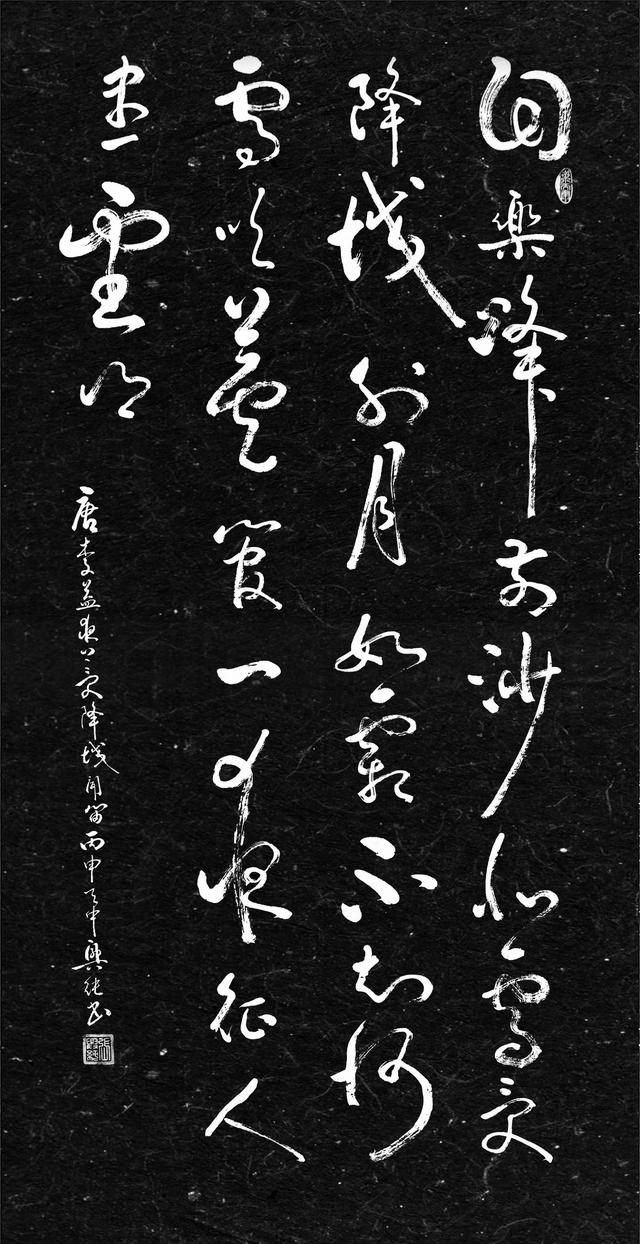 回樂峰前沙似雪受
降城外月如霜不知何
處吹蘆管一夜征人
盡望鄉
唐李益夜上受降城聞笛丙申年中興書